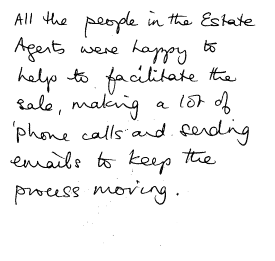 All the people in the Estate
Agents were happy to
help to facilitate the
sale, making a lot of
'phone calls and sending
emails to keep the
process moving.